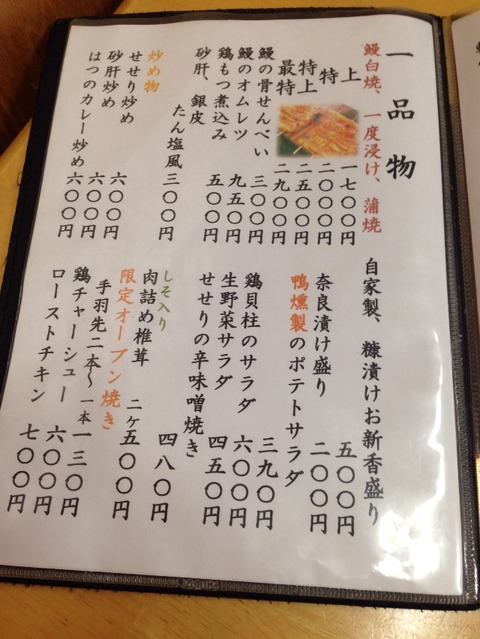 一品物
鰻白焼、一度浸け、蒲焼
上 一七〇〇円
特 二〇〇〇円
特上 二五〇〇円
最特 二九〇〇円
鰻の骨せんべい 三〇〇円
鰻のオムレツ 九五〇円
鶏もつ煮込み 五〇〇円
砂肝、銀皮
たん塩風 三〇〇円
炒め物
せせり炒め 六〇〇円
砂肝炒め 六〇〇円
はつのカレー炒め 六〇〇円
自家製、糠漬けお新香盛り 五〇〇円
奈良漬け盛り 二〇〇円
鴨燻製のポテトサラダ 三九〇円
鶏貝柱のサラダ 六〇〇円
生野菜サラダ 四五〇円
せせりの辛味噌焼き 四八〇円
しそ入り
肉詰め椎茸 二ケ 五〇〇円
限定オーブン焼き
手羽先二本〜 一本一三〇円
鶏チャーシュー 六〇〇円
ローストチキン 七〇〇円